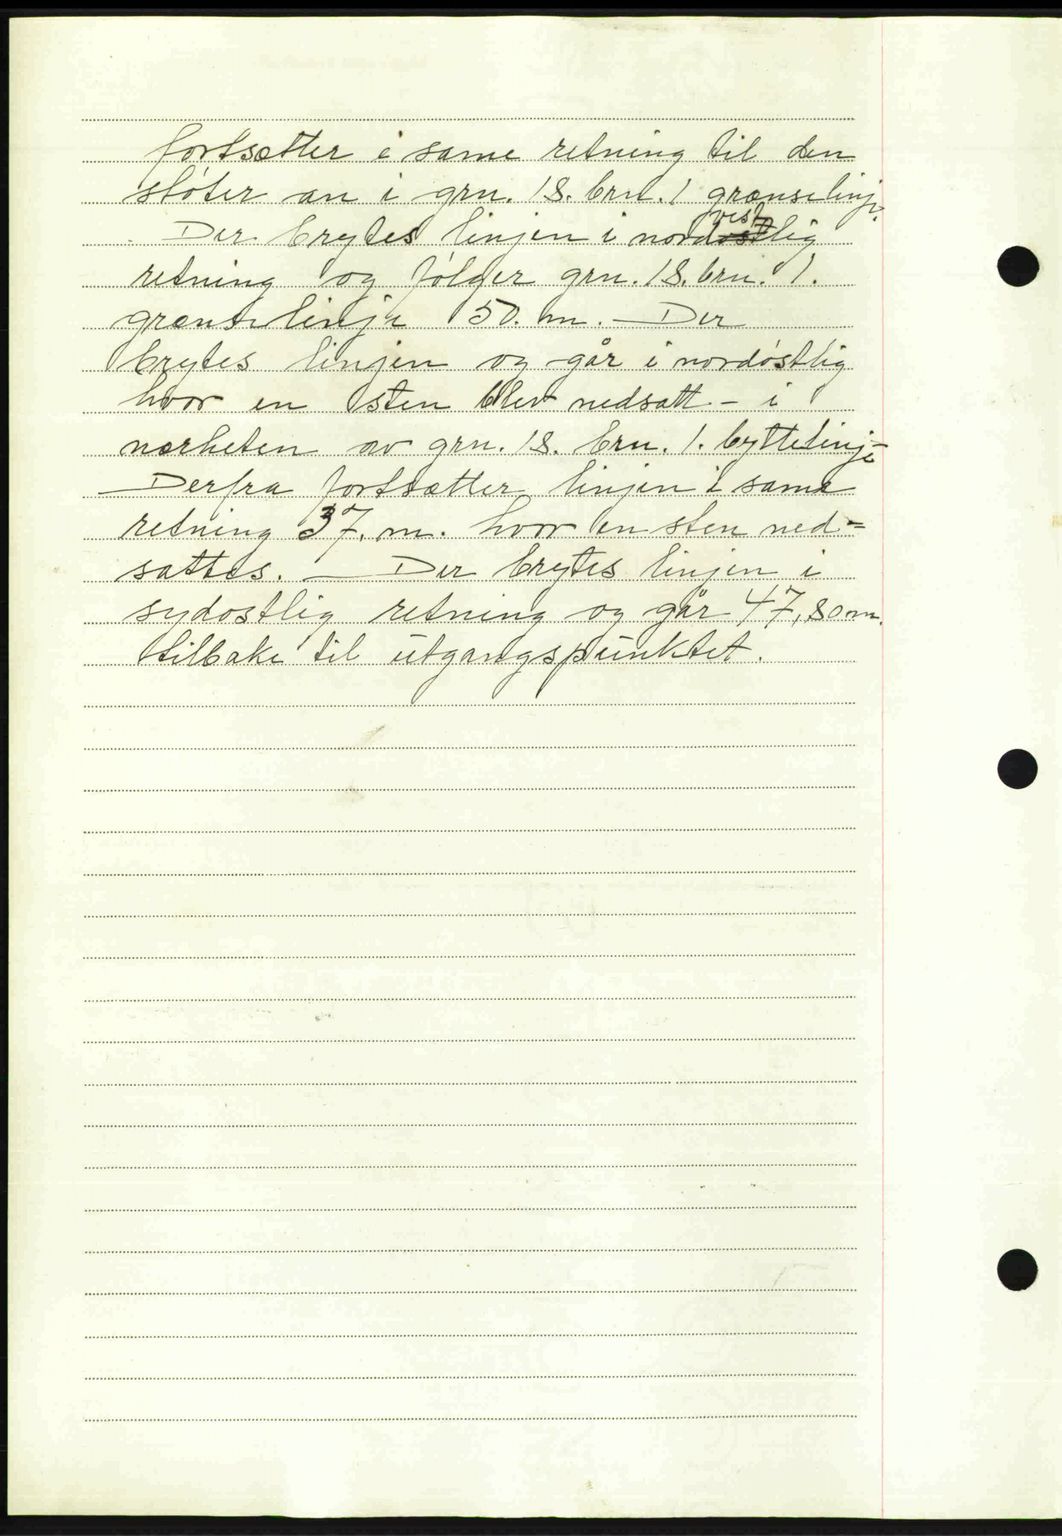 fortsætter i same retning til den
støter an i grn. 18. brn. 1 grænselinje.
Der brytes linjen i nordvestlig
retning og følger grn. 18. brn. 1.
grænselinje 50. m. — Der
brytes linjen og går i nordøstlig
hvor en sten blev nedsatt - i
nærheten av grn. 18. brn. 1. byttelinje
— Derfra fortsætter linjen i same
retning 37. m. hvor en sten ned-
sattes. — Der brytes linjen i
sydostlig retning og går 47,80 m.
tilbake til utgangspunktet.